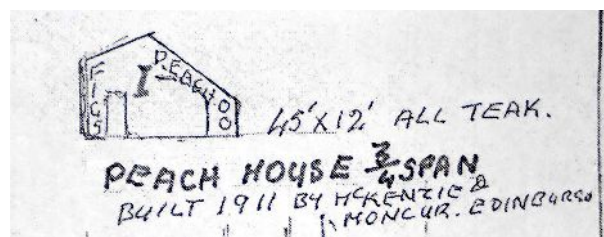 FIGS
I
PEACH
45'X12' ALL TEAK.
PEACH HOUSE 3/4 SPAN
BUILT 1911 BY MCKENZIE &
MONCUR. EDINBURGH